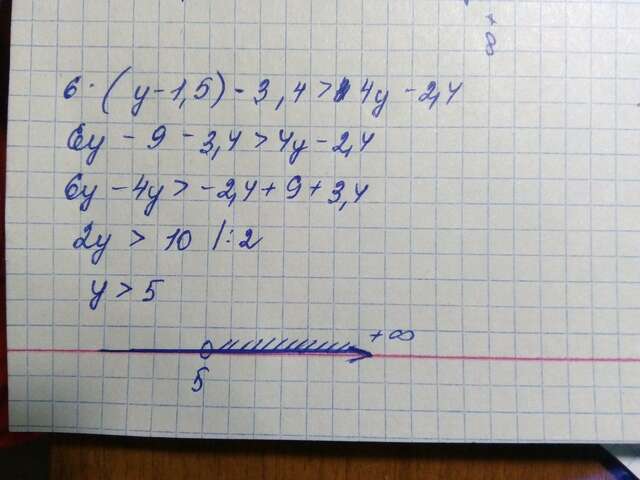 + ∞
6·(y-1,5)-3,4>4y-2,4
6y-9-3,4>4y-2,4
6y-4y>-2,4+9+3,4
2y>10 |:2
y>5
+∞
5